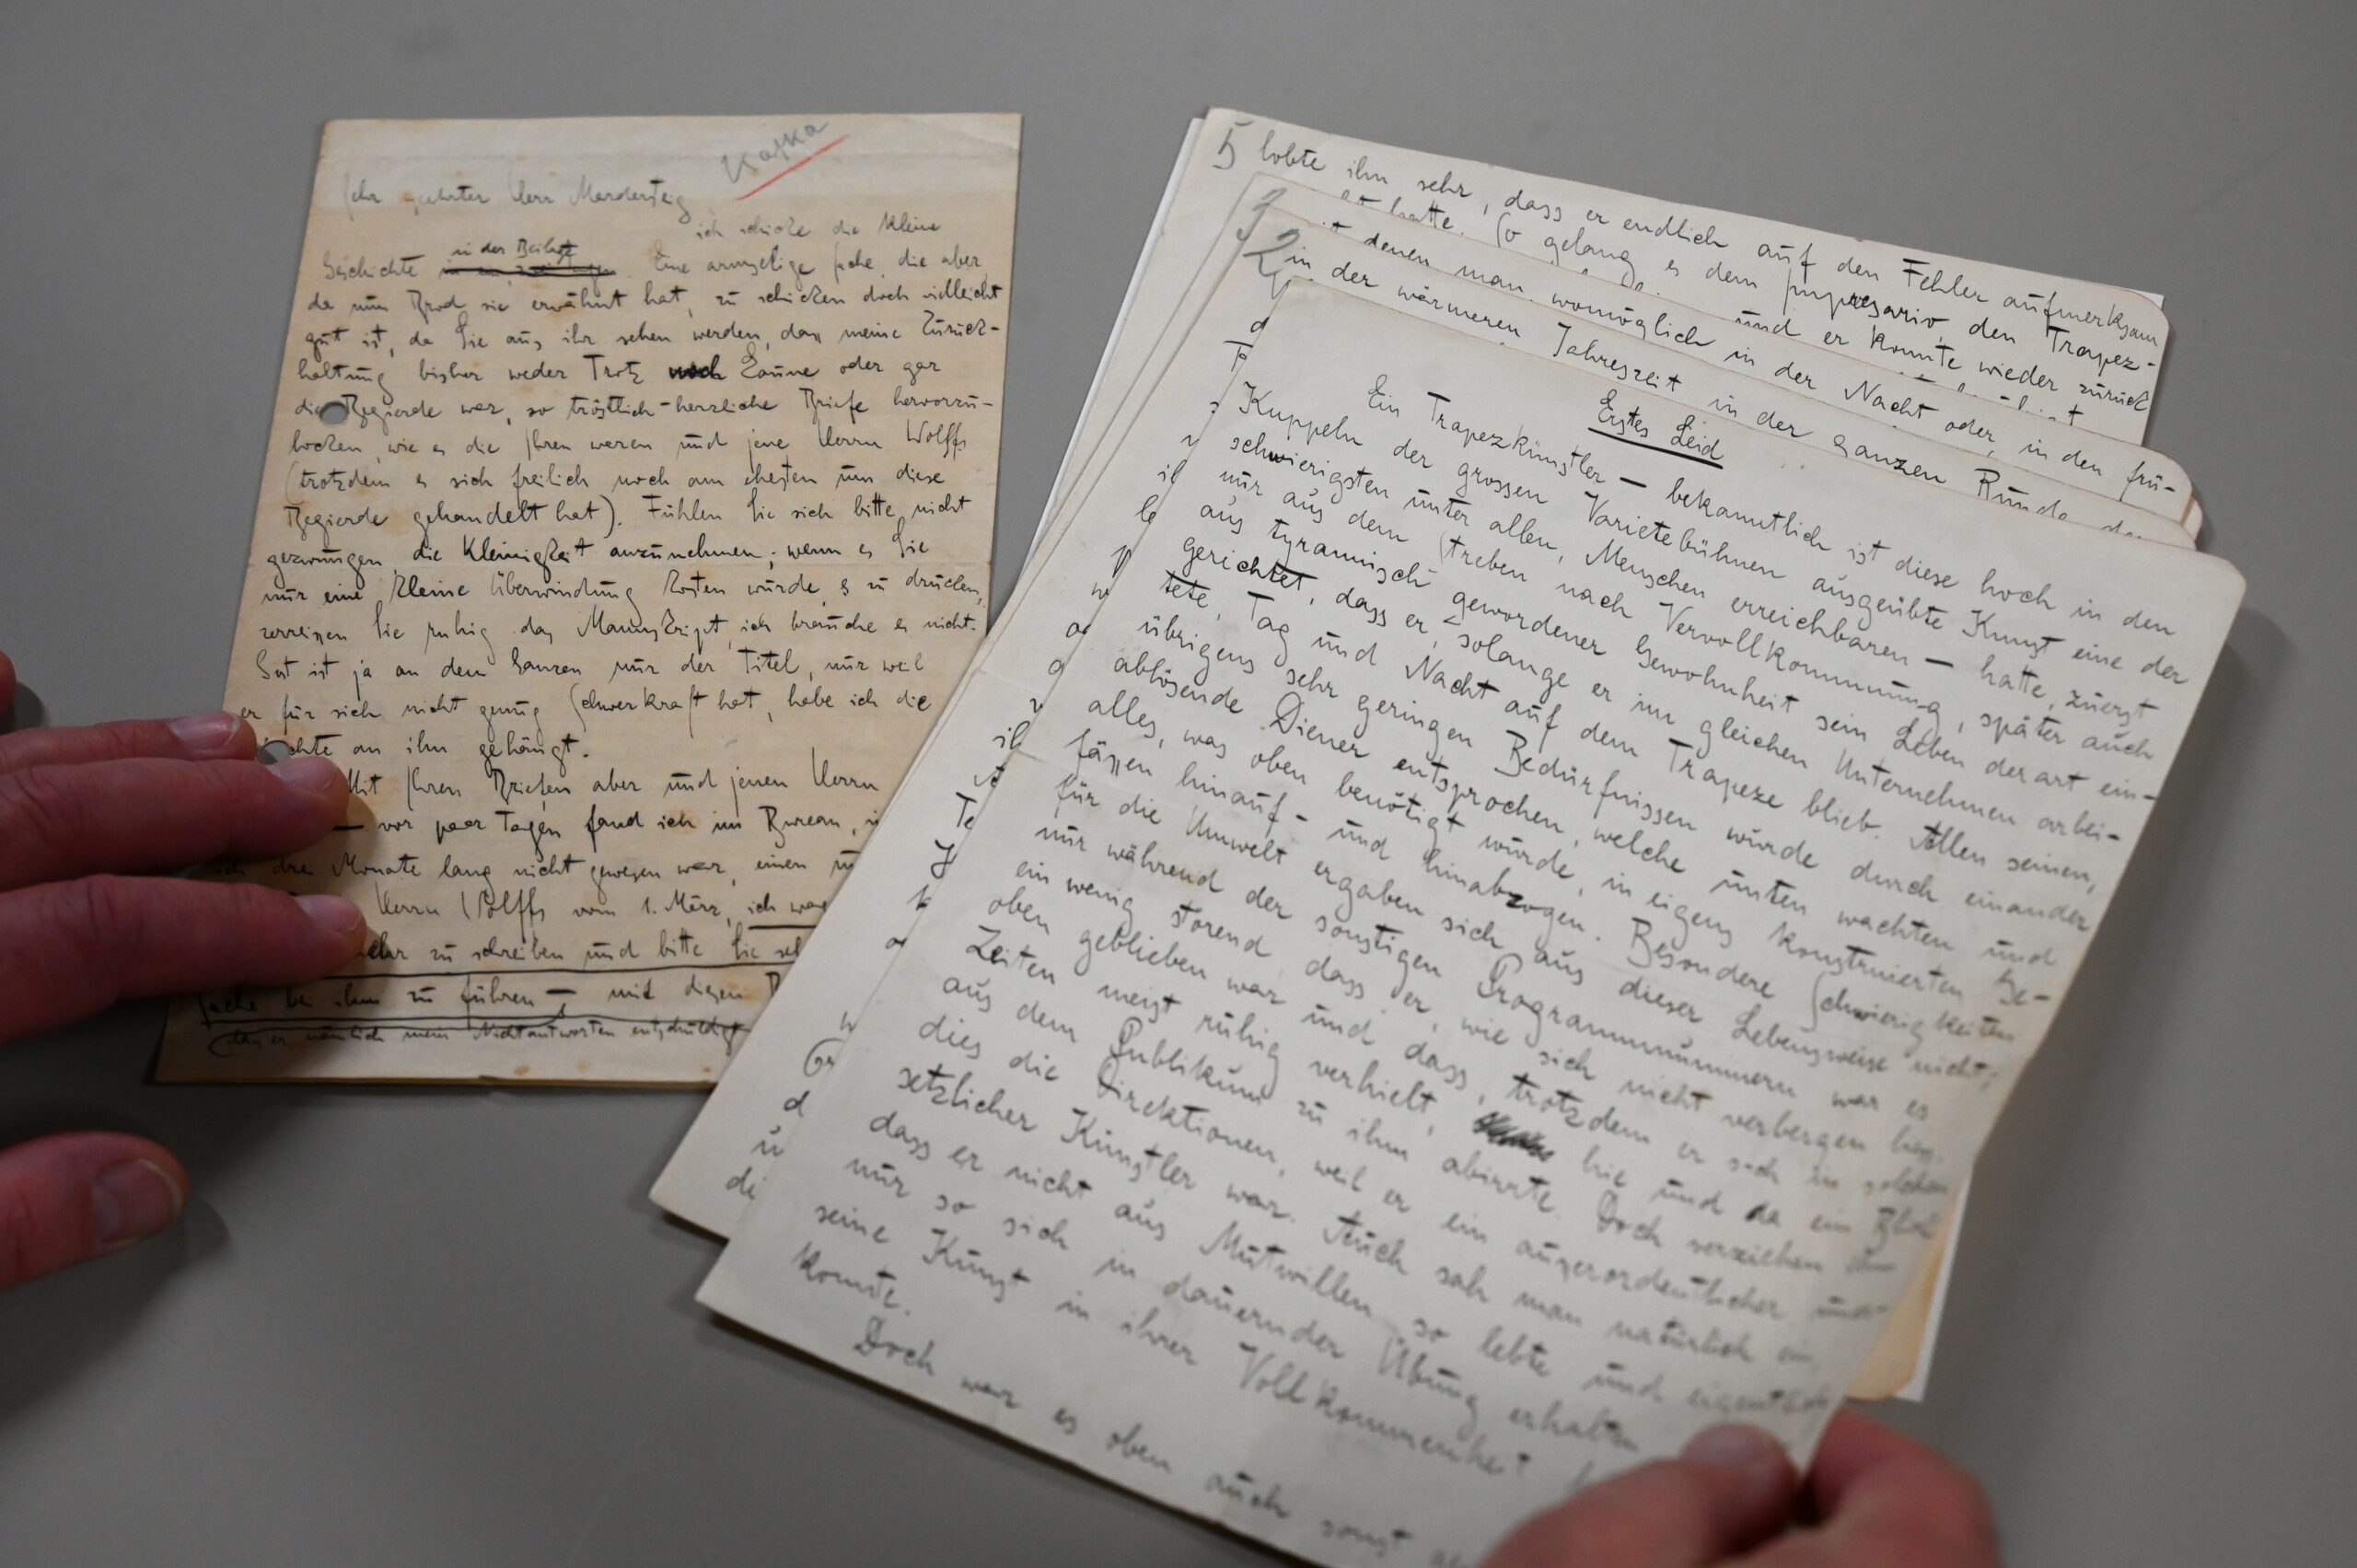 Kafka
Sehr geehrter Herr Mardersteig
ich schicke die kleine
in der Beilage
Geschichte. Eine armselige Sache, die aber
da nun Brod sie erwähnt hat, zu schicken doch vielleicht
gut ist, da Sie aus ihr sehen werden, dass meine Zurück-
haltung bisher weder Trotz noch Laune oder gar
die Begierde war, so tröstlich-herzliche Briefe hervorzu-
locken, wie es die Ihren waren und jene Herrn Wolffs
(trotzdem es sich freilich noch am ehesten um diese
Begierde gehandelt hat). Fühlen Sie sich bitte nicht
gezwungen, die Kleinigkeit anzunehmen; wenn es Sie
nur eine kleine Überwindung kosten würde, es zu drucken,
zerreissen Sie ruhig das Manuskript, ich brauche es nicht.
Gut ist ja an dem Ganzen nur der Titel, nur weil
er für sich nicht genug Schwerkraft hat, habe ich die
chte an ihn gehängt.
Mit Ihren Briefen aber und jenen Herrn
— vor paar Tagen fand ich im Bureau, i
ich drei Monate lang nicht gewesen war, einen
Herrn Wolffs vom 1. März, ich wag
mehr zu schreiben und bitte Sie se
Sache bei ihm zu führen — mit diesen B
(dass er nämlich mein Nichtantworten entschuldigt
5 lobte ihn sehr, dass er endlich auf den Fehler aufmerksam
hatte. So gelang es dem Impresario, den Trapez-
und er konnte wieder zurück
3
it denen man womöglich in der Nacht oder, in den frü-
2 in der wärmeren Jahreszeit in der ganzen Runde
Erstes Leid
Ein Trapezkünstler — bekanntlich ist diese hoch in den
Kuppeln der grossen Varietebühnen ausgeübte Kunst eine der
schwierigsten unter allen, Menschen erreichbaren — hatte, zuerst
nur aus dem Streben nach Vervollkommnung, später auch
aus tyrannisch gewordener Gewohnheit sein Leben derart ein-
gerichtet, dass er, solange er im gleichen Unternehmen arbei-
tete, Tag und Nacht auf dem Trapeze blieb. Allen seinen,
übrigens sehr geringen Bedürfnissen wurde durch einander
ablösende Diener entsprochen, welche unten wachten und
alles, was oben benötigt wurde, in eigens konstruierten Ge-
fässen hinauf- und hinabzogen. Besondere Schwierigkeiten
für die Umwelt ergaben sich aus dieser Lebensweise nicht;
nur während der sonstigen Programmnummern war es
ein wenig störend, dass er, wie sich nicht verbergen liess,
oben geblieben war und dass, trotzdem er sich in solchen
Zeiten meist ruhig verhielt, hie und da ein Blick
aus dem Publikum zu ihm abirrte. Doch verziehen ihm
dies die Direktionen, weil er ein ausserordentlicher uner-
setzlicher Künstler war. Auch sah man natürlich ein,
dass er nicht aus Mutwillen so lebte und eigentlich
nur so sich in dauernder Übung erhalten
seine Kunst in ihrer Vollkommenheit
konnte.
Doch war es oben auch sonst